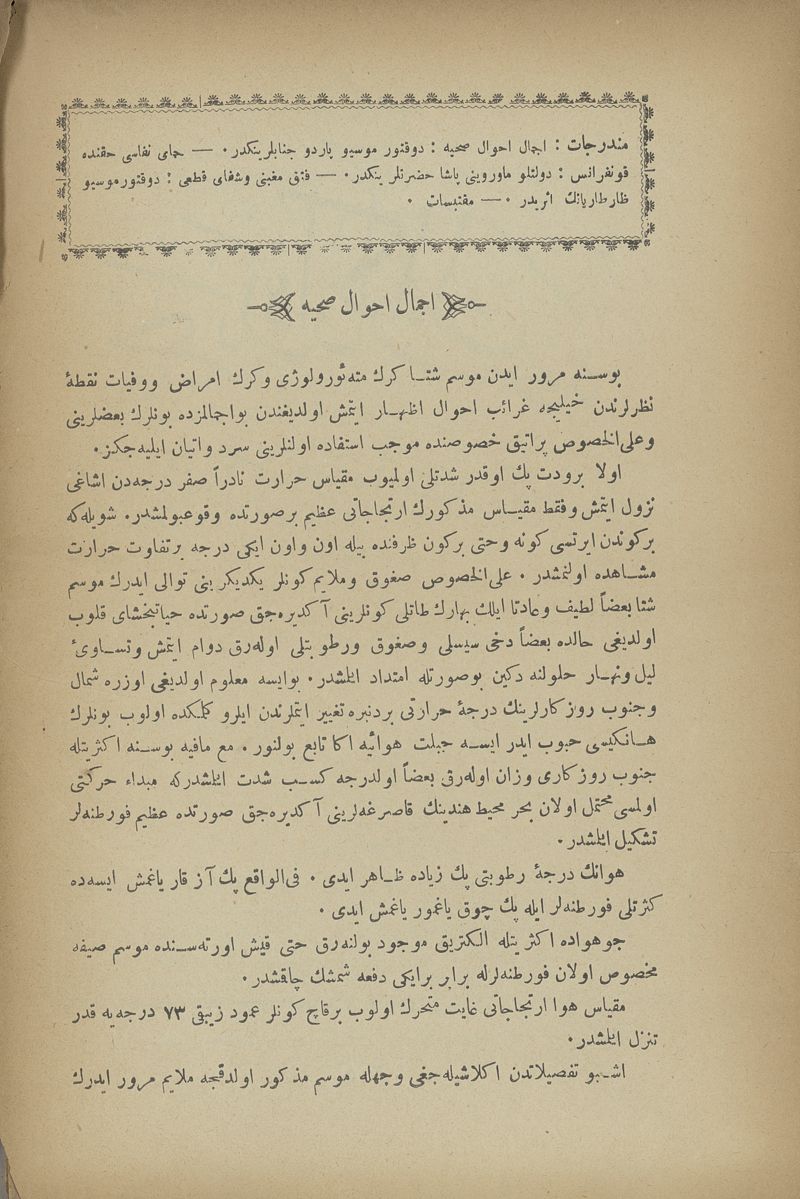 مندرجات : اجمال احوال صحیه : دوقتور موسیو پاردو جنابلرینكدر . — چای نفاسی حقنده
قونفرانس : دولتلو ماوروینی پاشا حضرتلرینكدر . — فتق مغبنی وشفای قطعی : دوقتور موسیو
ظارطاریانك اثریدر . — مقتبسات .
اجمال احوال صحیه
بوسنه مرور ایدن موسم شتا كرك مته‌ئورولوژی وكرك امراض ووفیات نقطهٔ
نظرلرندن خیلیجه غرائب احوال اظهار ایتمش اولدیغندن بواجمالمزده بونلرك بعضلرینی
وعلی‌الخصوص پراتیق خصوصنده موجب استفاده اولنلرینی سرد واتیان ایلیه‌جكز .
اولا برودت پك اوقدر شدتلی اولمیوب مقیاس حرارت نادراً صفر درجه‌دن اشاغی
نزول ایتمش وفقط مقیاس مذكورك ارتجاجاتی عظیم برصورتده وقوعبولمشدر . شویله‌كه
بركوندن ایرتسی كونه وحتی بركون ظرفنده بیله اون واون ایكی درجه برتفاوت حرارت
مشاهده اولنمشدر . علی‌الخصوص صغوق وملایم كونلر یكدیكرینی توالی ایدرك موسم
شتا بعضاً لطیف وعادتا ایلك بهارك طاتلی كونلرینی آكدیره‌جق صورتده حیاتبخشای قلوب
اولدیغی حالده بعضاً دخی سیسلی وصغوق ورطوبتلی اوله‌رق دوام ایتمش وتساویٔ
لیل ونهار حلولنه دكین بوصورتله امتداد ایلمشدر . بوایسه معلوم اولدیغی اوزره شمال
وجنوب روزكارلرینك درجهٔ حرارتی بردنبره تغییر ایتملرندن ایلرو كلمكده اولوب بونلرك
هانكیسی هبوب ایدر ایسه جبلت هوائیه اكا تابع بولنور . مع مافیه بوسنه اكثریتله
جنوب روزكاری وزان اوله‌رق بعضاً اولدرجه كسب شدت ایلمشدركه مبداء حركتی
اولمسی محتمل اولان بحر محیط هندینك قاصرغه‌لرینی آكدیره‌جق صورتده عظیم فورطنه‌لر
تشكیل ایلمشدر .
هوانك درجهٔ رطوبتی پك زیاده ظاهر ایدی . فی‌الواقع پك آز قار یاغمش ایسه‌ده
كثرتلی فورطنه‌لر ایله پك چوق یاغمور یاغمش ایدی .
جوهواده اكثریتله الكتریق موجود بولنه‌رق حتی قیش اورته‌سنده موسم صیفه
مخصوص اولان فورطنه‌لرله برابر برایكی دفعه شمشك چاقمشدر .
مقیاس هوا ارتجاجاتی غایت متحرك اولوب برقاچ كونلر عمود زیبقی ٧٣ درجه‌یه قدر
تنزل ایلمشدر .
اشبو تفصیلاتدن اكلاشیله‌جغی وجهله موسم مذكور اولدقجه ملایم مرور ایدرك